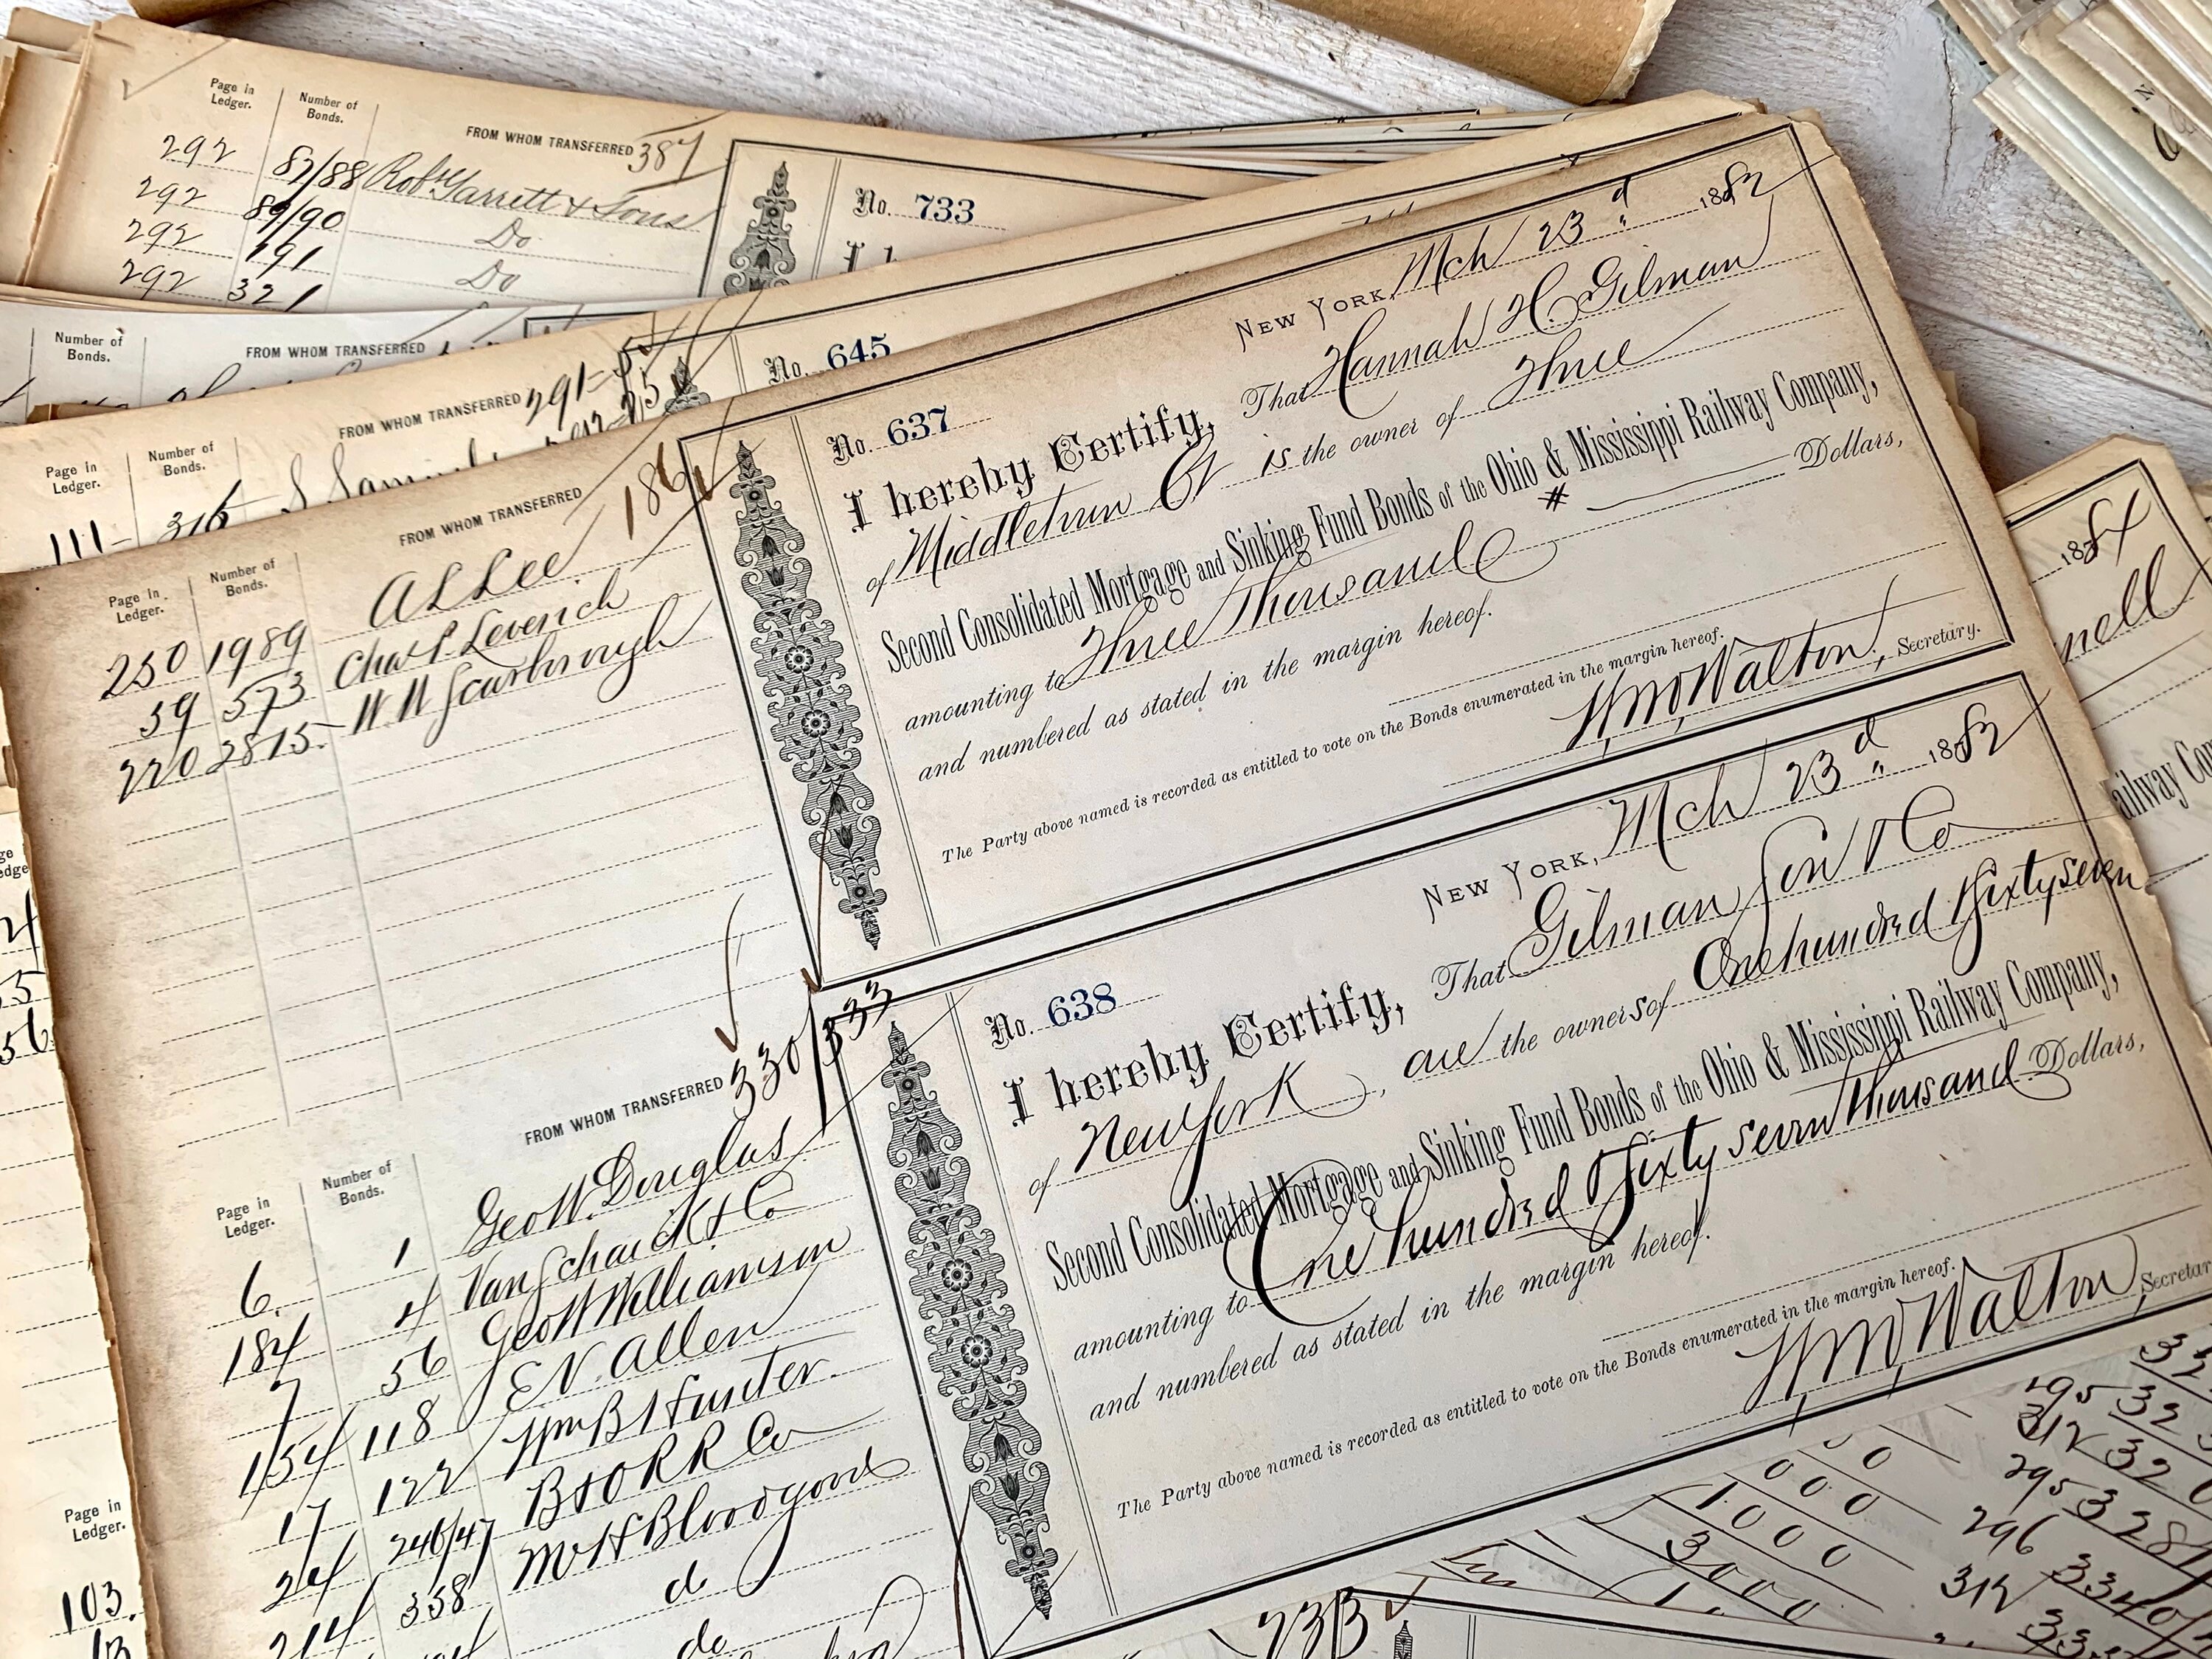 Page in Ledger.
Number of Bonds.
FROM WHOM TRANSFERRED 387
292 87/88 Robt Garrett & Sons
292 89/90 Do
292 191 Do
292 321
No. 733
Number of Bonds.
FROM WHOM TRANSFERRED
Page in Ledger.
Number of Bonds.
FROM WHOM TRANSFERRED 291=5
111- 316
No. 645
Page in Ledger.
Number of Bonds.
FROM WHOM TRANSFERRED
250 1989 A L Lee
59 573 Chas P Leverich
220 2815- W W Scarborough
No. 637
NEW YORK, Mch 23d 1882
I hereby Certify, That Hannah H. Gilman
of Middletown Ct is the owner of Three
Second Consolidated Mortgage and Sinking Fund Bonds of the Ohio & Mississippi Railway Company,
amounting to Three Thousand # Dollars,
and numbered as stated in the margin hereof.
The Party above named is recorded as entitled to vote on the Bonds enumerated in the margin hereof.
Wm Walton, Secretary.
Page in Ledger.
Number of Bonds.
FROM WHOM TRANSFERRED 330/333
6. 1 Geo W. Douglas
184 4 Van Schaick & Co
7 56 Geo W Williamson
154 118 E N. Allen
17 122 Wm B Hunter.
24 246/47 B & O R R Co
214 338 M H Bloodgood
do
do
No. 638
NEW YORK, Mch 23d 1882
I hereby Certify, That Gilman Son & Co
of New York, are the owners of One hundred & Sixty seven
Second Consolidated Mortgage and Sinking Fund Bonds of the Ohio & Mississippi Railway Company,
amounting to One hundred & Sixty seven thousand Dollars,
and numbered as stated in the margin hereof.
The Party above named is recorded as entitled to vote on the Bonds enumerated in the margin hereof.
Wm Walton, Secretar
1884
nell
ailway Co
Page in Ledger.
103.
13
733
000
1000
3000
295 32
312 320
295 328
296 3340
312